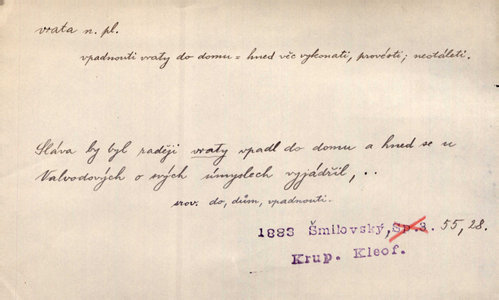 vrata n. pl.
vpadnouti vraty do domu = hned věc vykonati, provésti; neotáleti.
Sláva by byl raději vraty vpadl do domu a hned se u
Valvodových o svých úmyslech vyjádřil, ..
srov. do, dům, vpadnouti.
1883 Šmilovský, Sp.3. 55, 28.
Krup. Kleof.